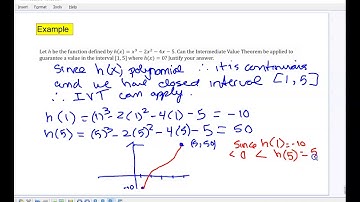 Example
Let h be the function defined by h(x) = x³ − 2x² − 4x − 5. Can the Intermediate Value Theorem be applied to
guarantee a value in the interval [1, 5] where h(x) = 0? Justify your answer.
Since h(x) polynomial ∴ it is continuous
and we have closed interval [1, 5]
∴ IVT can apply.
h(1) = (1)³ − 2(1)² − 4(1) − 5 = −10
h(5) = (5)³ − 2(5)² − 4(5) − 5 = 50
(5, 50)
-10
Since h(1) = −10
< 0 < h(5) = 5